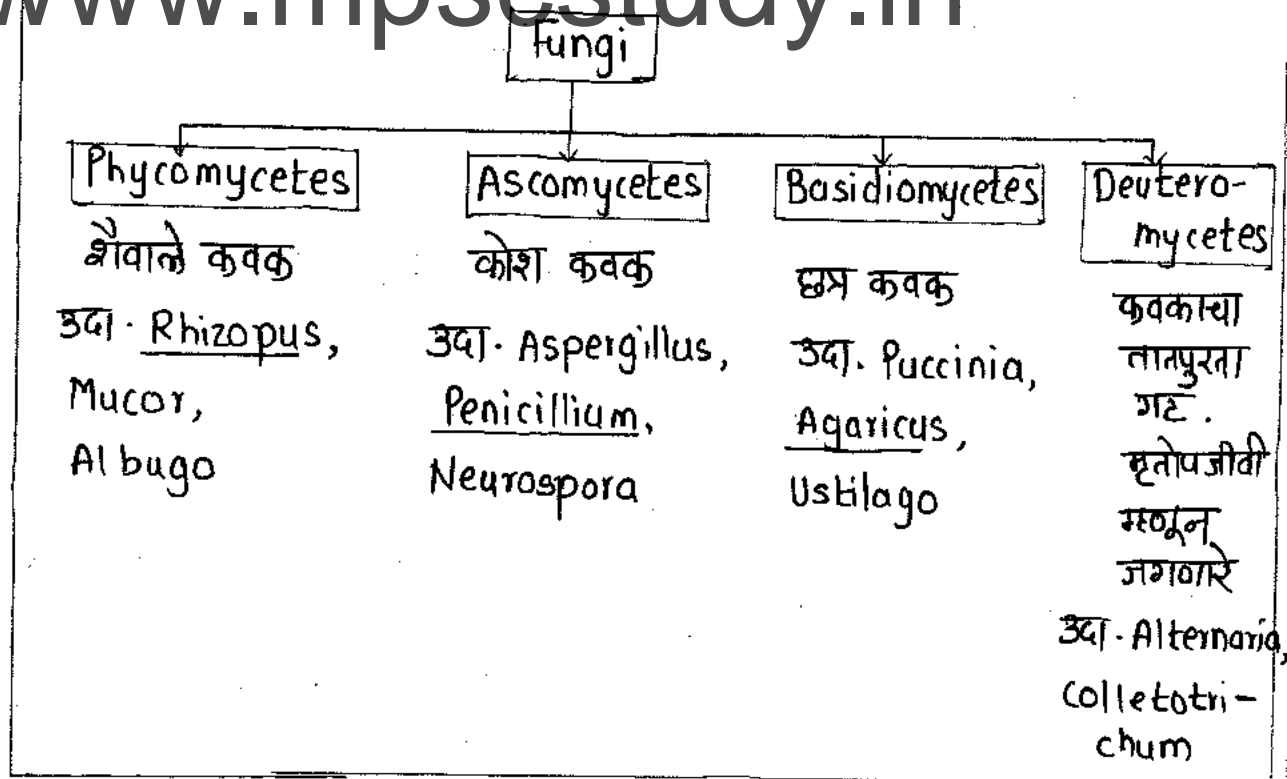 www.mpscstudy.in
Fungi
Phycomycetes
शैवाले कवक
उदा. Rhizopus,
Mucor,
Albugo
Ascomycetes
कोश कवक
उदा. Aspergillus,
Penicillium,
Neurospora
Basidiomycetes
छत्र कवक
उदा. Puccinia,
Agaricus,
Ustilago
Deutero-
mycetes
कवकाचा
तात्पुरता
गट.
मृतोपजीवी
म्हणून
जगणारे
उदा. Alternaria,
Colletotri-
chum